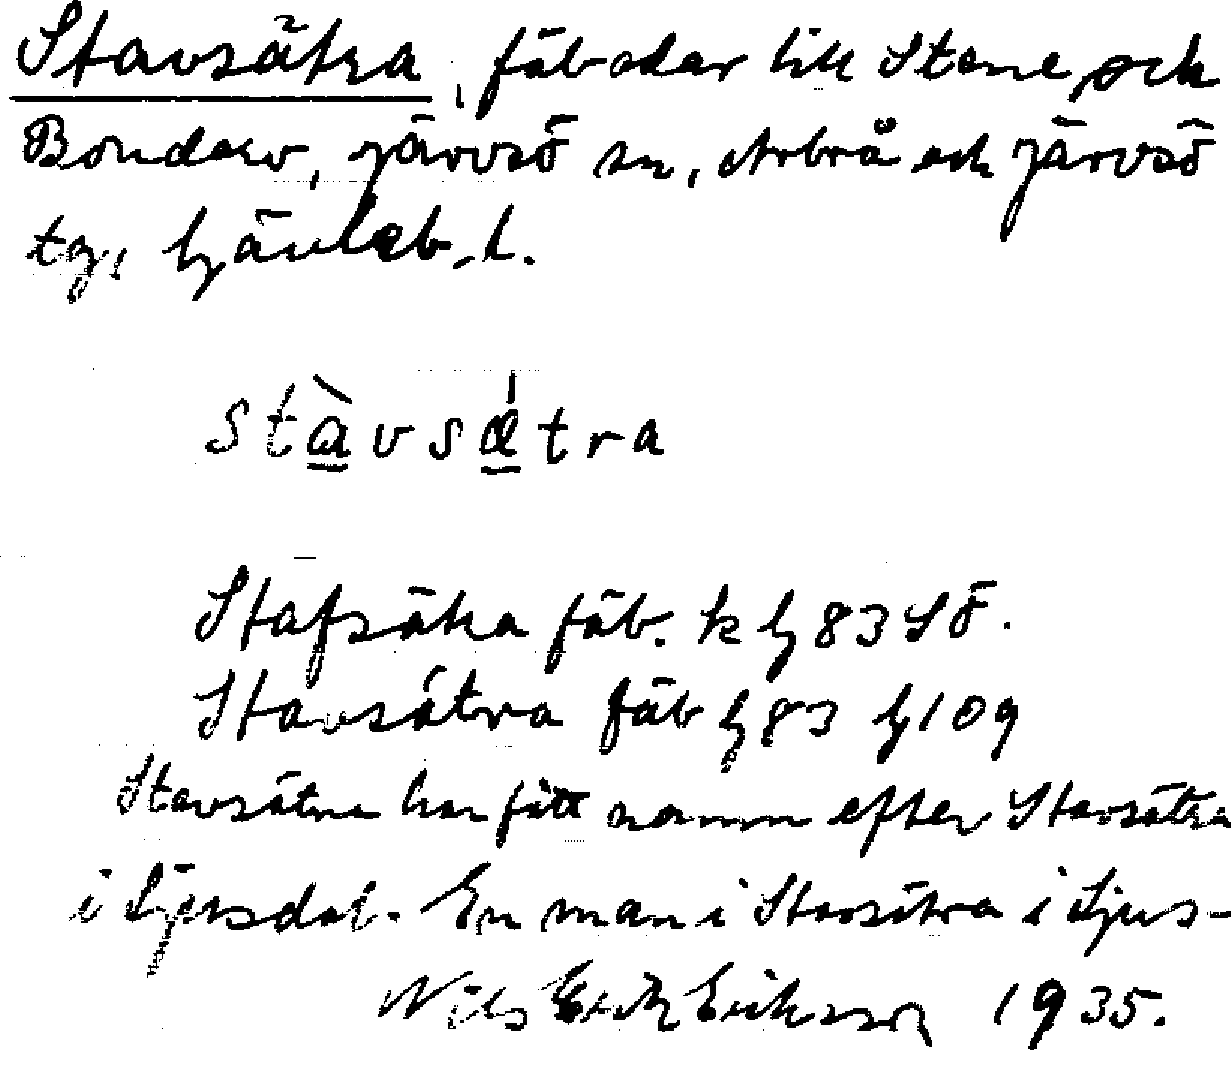 Stavsätra, fäbodar till Stene och
Bondarv, Järvsö sn, Arbrå och Järvsö
tg, Gävleb. l.
stàvsätra
Stafsätra fäb. k G 83 SÖ.
Stavsätra fäb G 83 G 109
Stavsätra har fått namn efter Stavsätra
i Ljusdal. En man i Stavsätra i Ljus-
Nils Erik Eriksson 1935.